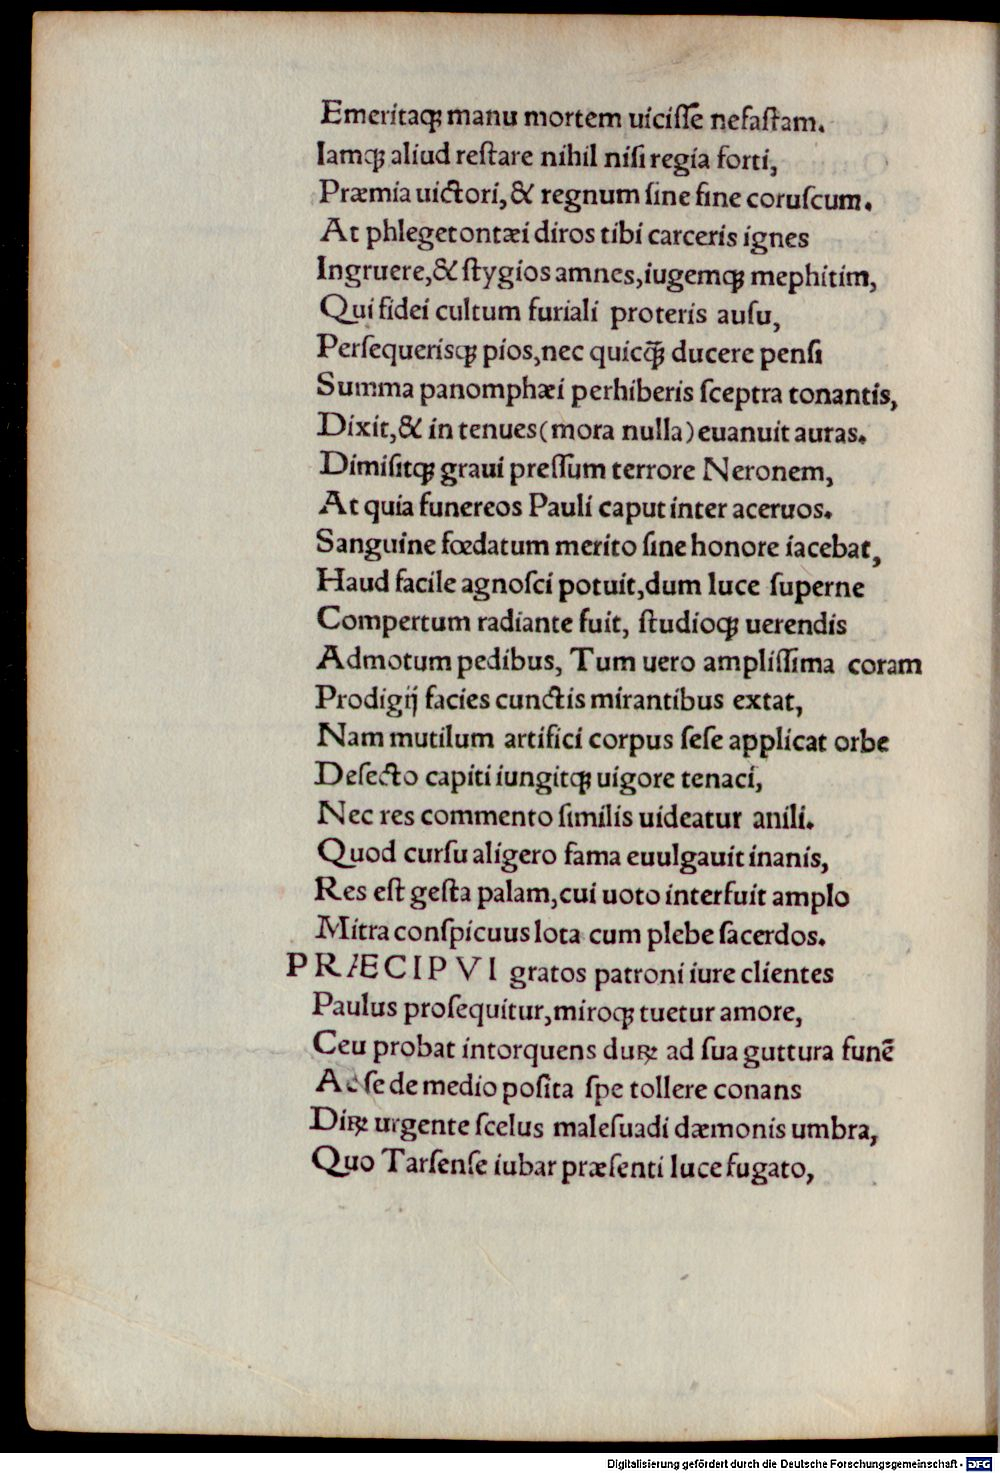 Emeritaq; manu mortem uiciſſe nefaſtam.
Iamq; aliud reſtare nihil niſi regia forti,
Præmia uictori, & regnum ſine fine coruſcum.
At phlegetontæi diros tibi carceris ignes
Ingruere, & ſtygios amnes, iugemq; mephitim,
Qui fidei cultum furiali proteris auſu,
Perſequerisq; pios, nec quicq̃ ducere penſi
Summa panomphæi perhiberis ſceptra tonantis,
Dixit, & in tenues (mora nulla) euanuit auras.
Dimiſitq; graui preſſum terrore Neronem,
At quia funereos Pauli caput inter aceruos.
Sanguine fœdatum merito ſine honore iacebat,
Haud facile agnoſci potuit, dum luce ſuperne
Compertum radiante fuit, ſtudioq; uerendis
Admotum pedibus, Tum uero ampliſſima coram
Prodigij facies cunctis mirantibus extat,
Nam mutilum artifici corpus ſeſe applicat orbe
Deſecto capiti iungitq; uigore tenaci,
Nec res commento ſimilis uideatur anili.
Quod curſu aligero fama euulgauit inanis,
Res eſt geſta palam, cui uoto interfuit amplo
Mitra conſpicuus lota cum plebe ſacerdos.
PRÆCIPVI gratos patroni iure clientes
Paulus proſequitur, miroq; tuetur amore,
Ceu probat intorquens duꝝ ad ſua guttura funē
Ac ſe de medio poſita ſpe tollere conans
Diꝝ urgente ſcelus maleſuadi dæmonis umbra,
Quo Tarſenſe iubar præſenti luce fugato,
Digitalisierung gefördert durch die Deutsche Forschungsgemeinschaft - DFG